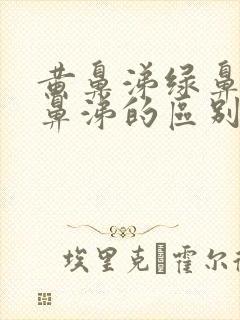 黄鼻涕绿鼻
鼻涕的区别
埃里克 霍尔